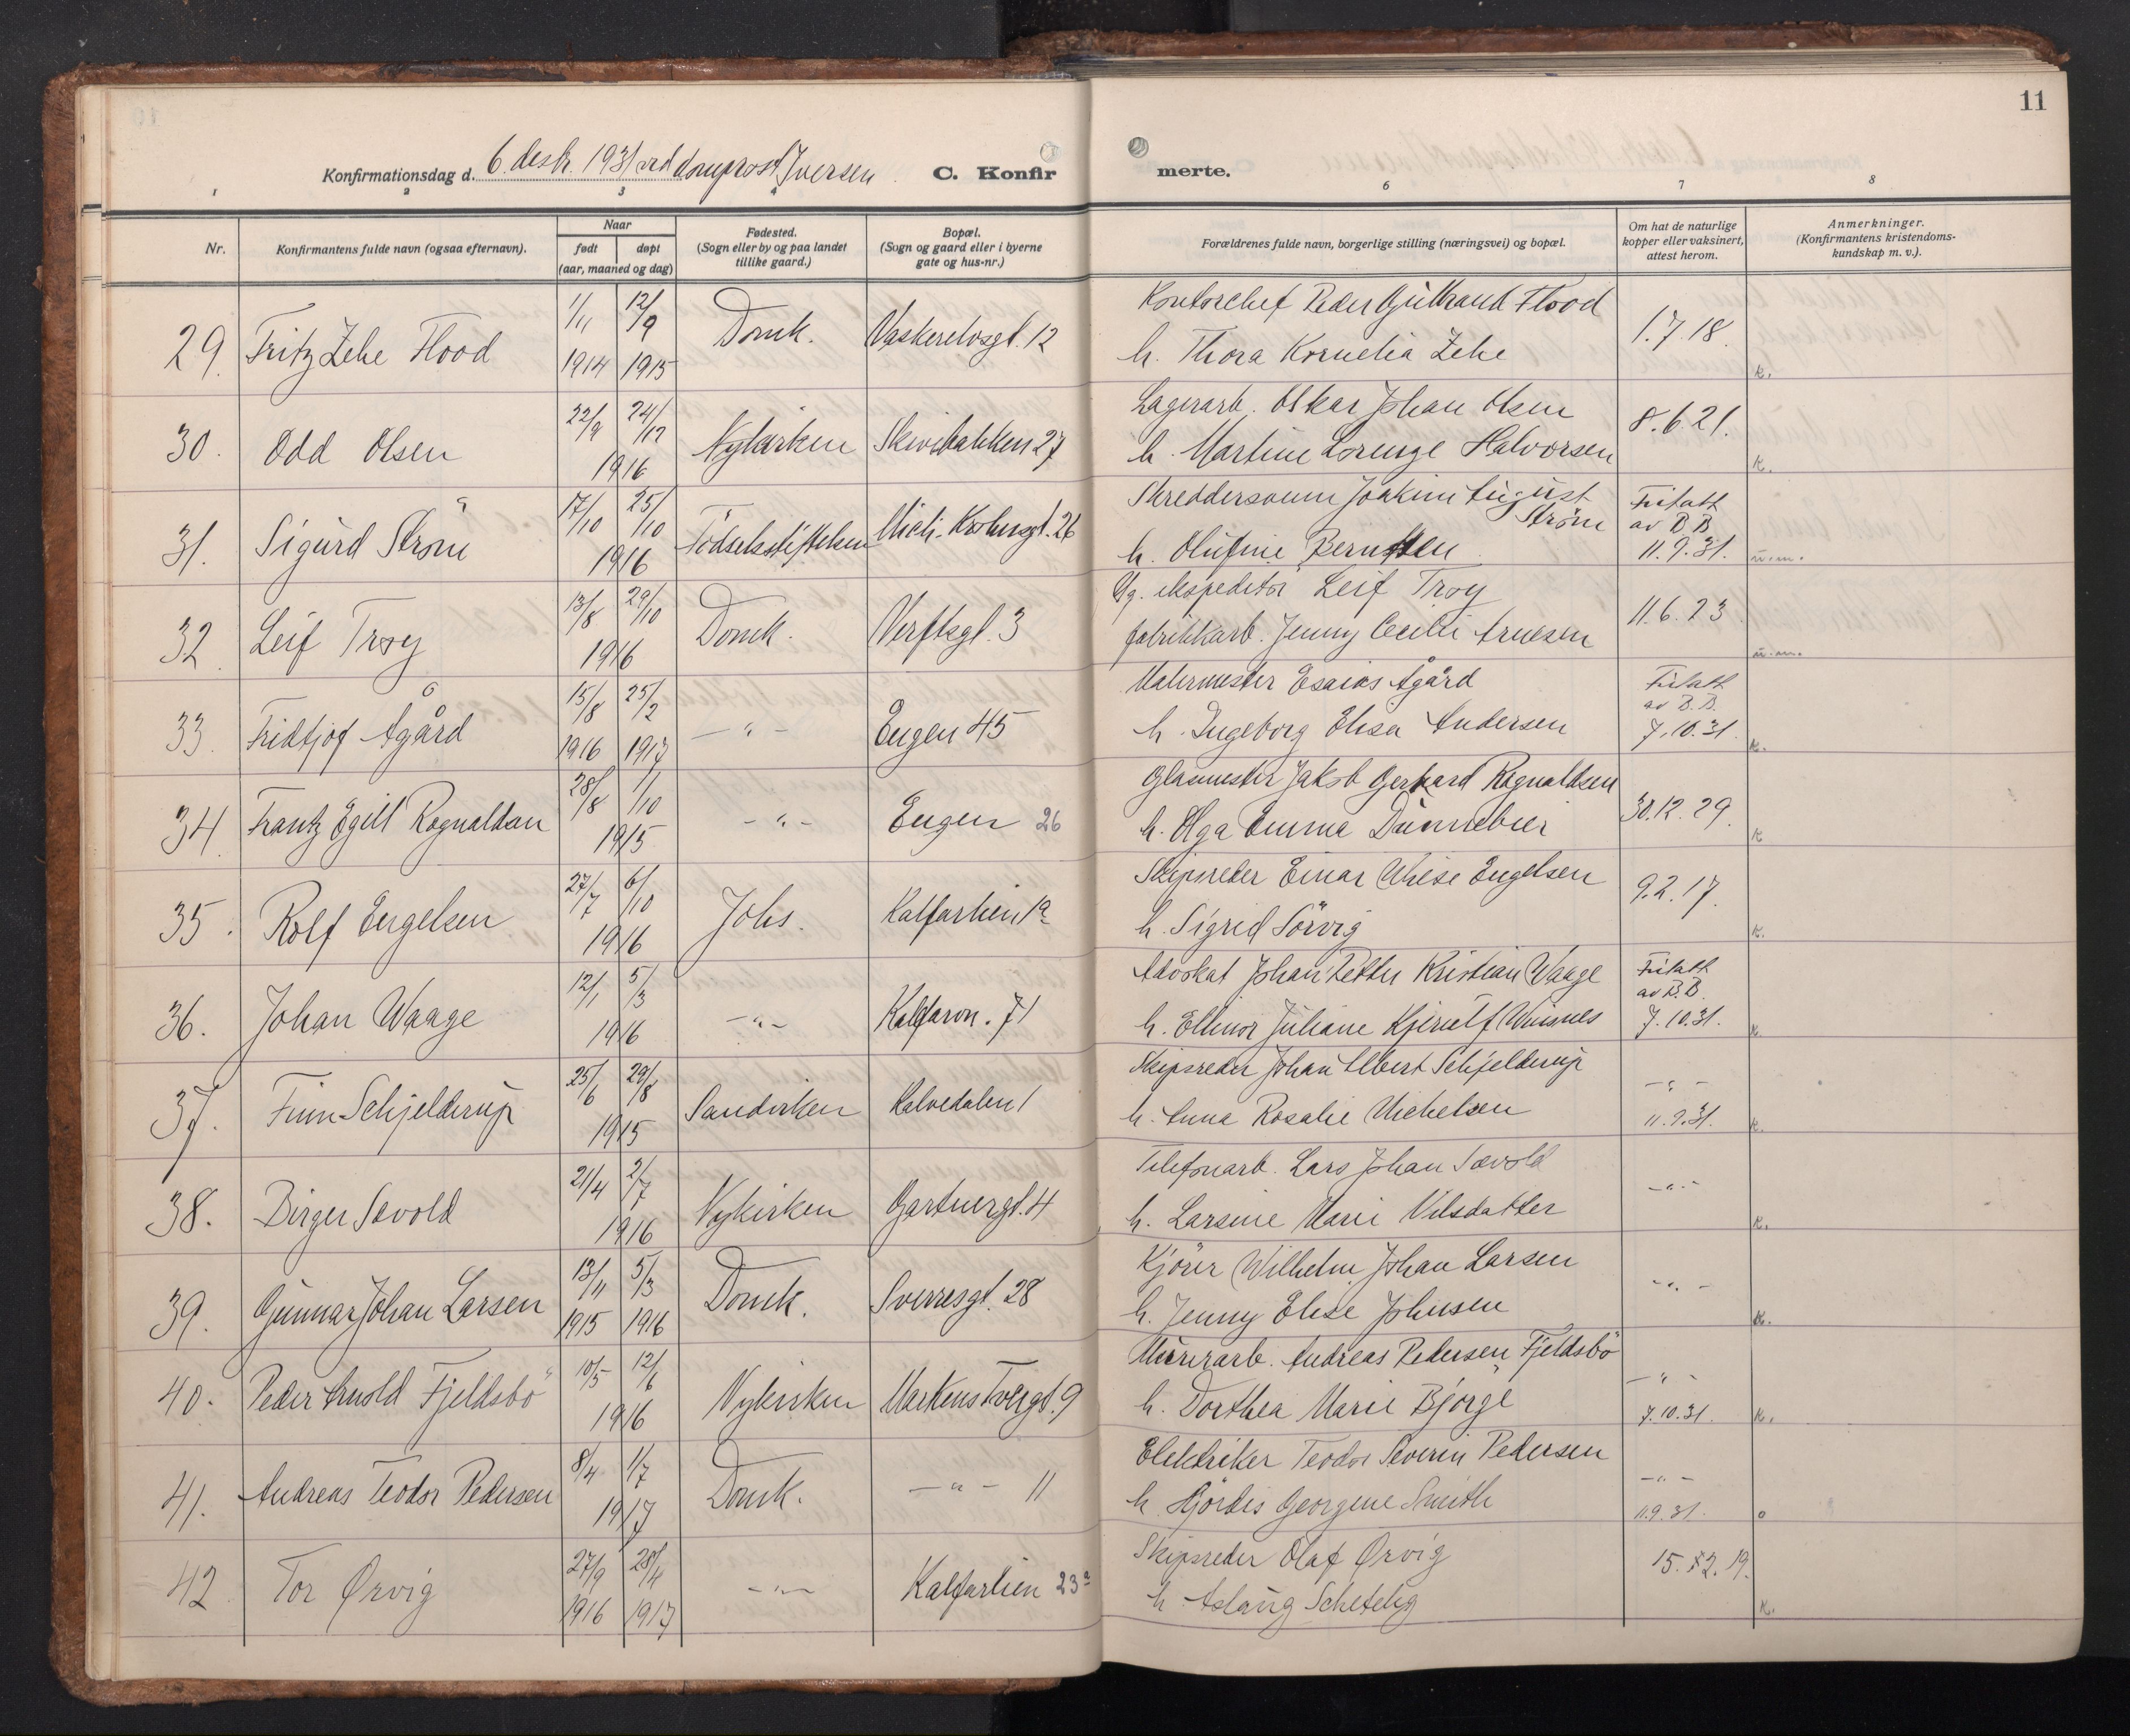 11
Konfirmationsdag d. 6. desbr. 1931 ved domprost Iversen
C. Konfirmerte.
1 2 3 4 6 7 8
Nr.
Konfirmantens fulde navn (ogsaa efternavn).
Naar
født
døpt
(aar, maaned og dag)
Fødested.
(Sogn eller by og paa landet
tillike gaard.)
Bopæl.
(Sogn og gaard eller i byerne
gate og hus-nr.)
Forældrenes fulde navn, borgerlige stilling (næringsvei) og bopæl.
Om hat de naturlige
kopper eller vaksinert,
attest herom.
Anmerkninger.
(Konfirmantens kristendoms-
kundskap m. v.).
29. Fritz Zehe Flood 1/11 1914 12/9 1915 Domk. Vaskerelvsgt. 12
Kontorchef Peder Gulbrand Flood
h. Thora Kornelia Zehe
1.7.18. k.
30. Odd Olsen 22/9 24/12 1916 Nykirken Skivebakken 27
Lagerarb. Oskar Johan Olsen
h. Martine Lorenge Halvorsen
8.6.21. k.
31. Sigurd Strøm 17/10 25/10 1916 Födselsstiftelsen Mich. Krohnsgt. 26
Skreddersvenn Joakim August
Ström
h. Olufine Berntsen
Fritatt
av B.B.
11.9.31. u.m.
32. Leif Troy 13/8 29/10 1916 Domk. Verftsgt. 3
Ug. ekspeditør Leif Troy
fabrikkarb. Jenny Cecilie Arnesen
11.6.23 u.m.
33. Fridtjof Ågård 15/8 1916 25/2 1917 — " — Engen 45
Malermester Esaias Ågård
h. Ingeborg Elisa Andersen
Fritatt
av B.B.
7.10.31. k.
34. Frantz Egill Rognaldsen 28/8 1/10 1915 — " — Engen 26
Glasmester Jakob Gerhard Rognaldsen
h. Olga Emma Dünnebier
30.12.29. k
35. Rolf Engelsen 27/7 6/10 1916 Johs. Kalfarlien 1a
Skipsreder Einar Wiese Engelsen
h. Sigrid Sörvig
9.2.17. k.
36. Johan Waage 12/1 5/3 1916 — " — Kalfarvn. 71
Advokat Johan Petter Kristian Waage
h. Ellinor Juliane Kjerulf Wiisnes
Fritatt
av B.B.
7.10.31. k.
37. Finn Schjelderup 25/6 29/8 1915 Sandviken Kalvedalen 1
Skipsreder Johan Elbert Schjelderup
h. Anna Rosalie Michelsen
— " —
11.9.31. k.
38. Birger Sævold 21/4 2/7 1916 Nykirken Gartnergt. 4
Telefonarb. Lars Johan Sævold
h. Larsine Marie Nilsdatter
— " — k.
39. Gunnar Johan Larsen 13/11 1915 5/3 1916 Domk. Sverresgt. 28
Kjörer Wilhelm Johan Larsen
h. Jenny Elise Johnsen
— " — k.
40. Peder Arnold Fjeldsbö 10/5 12/6 1916 Nykirken Markens Tvergt. 9
Murerarb. Andreas Pedersen Fjeldsbö
h. Dorthea Marie Björge
— " —
7.10.31. k.
41. Andreas Teodor Pedersen 8/4 1/7 1917 Domk. — " — 11
Elektriker Teodor Severin Pedersen
h. Hjördis Georgine Smith
— " —
11.9.31. o
42 Tor Ørvig 27/9 1916 28/4 1917 — " — Kalfarlien 23a
Skipsreder Olaf Ørvig
h. Aslaug Schetelig
15.12.19. k.